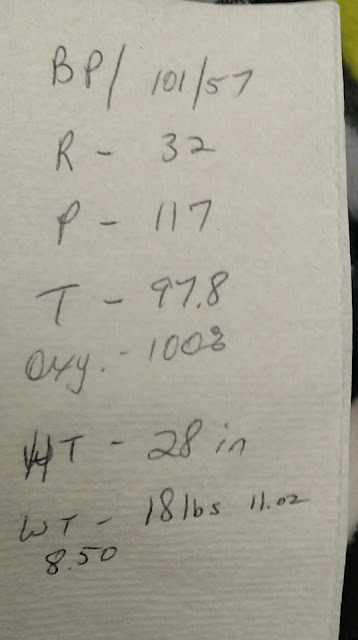 BP/ 101/57
R - 32
P - 117
T - 97.8
Oxy. - 100%
HT - 28 in
WT - 18 lbs 11.02
8.50